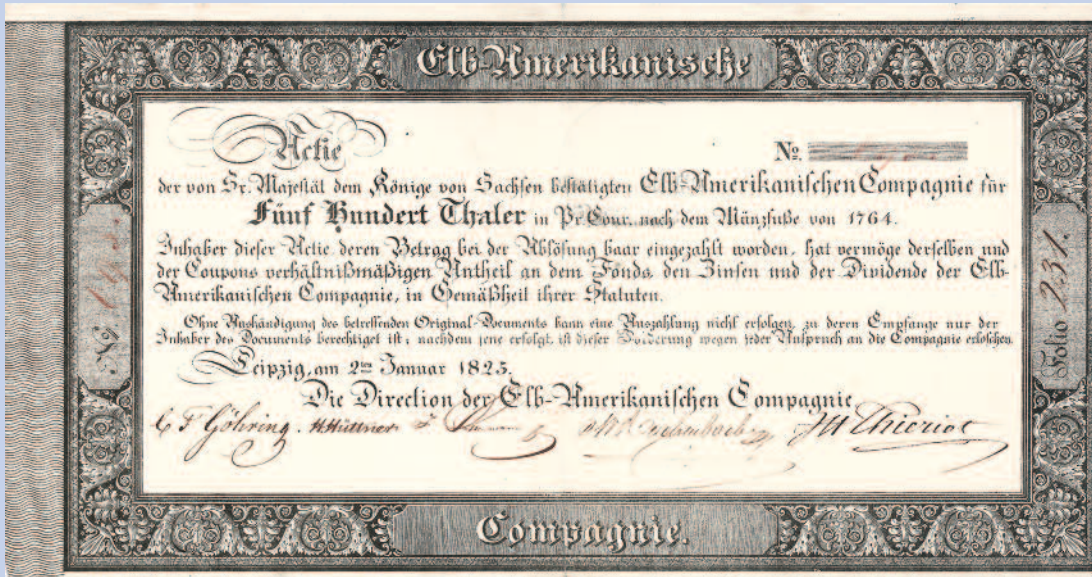 Elb-Amerikanische
Actie
No.
der von Sr. Majestät dem Könige von Sachsen bestätigten Elb-Amerikanischen Compagnie für
Fünf Hundert Thaler in Pr. Cour. nach dem Münzfuße von 1764.
Inhaber dieser Actie deren Betrag bei der Ablösung baar eingezahlt worden, hat vermöge derselben und
der Coupons verhältnißmäßigen Antheil an dem Fonds, den Zinsen und der Dividende der Elb-
Amerikanischen Compagnie, in Gemäßheit ihrer Statuten.
Ohne Aushändigung des betreffenden Original-Documents kann eine Auszahlung nicht erfolgen, zu deren Empfange nur der
Inhaber des Documents berechtiget ist; nachdem jene erfolgt, ist dieser Forderung wegen jeder Anspruch an die Compagnie erloschen.
Leipzig, am 2ten Januar 1825.
Die Direction der Elb-Amerikanischen Compagnie
C F Göhring. H. Hüttner J H Thieriot
Compagnie.
No.
Folio 231.